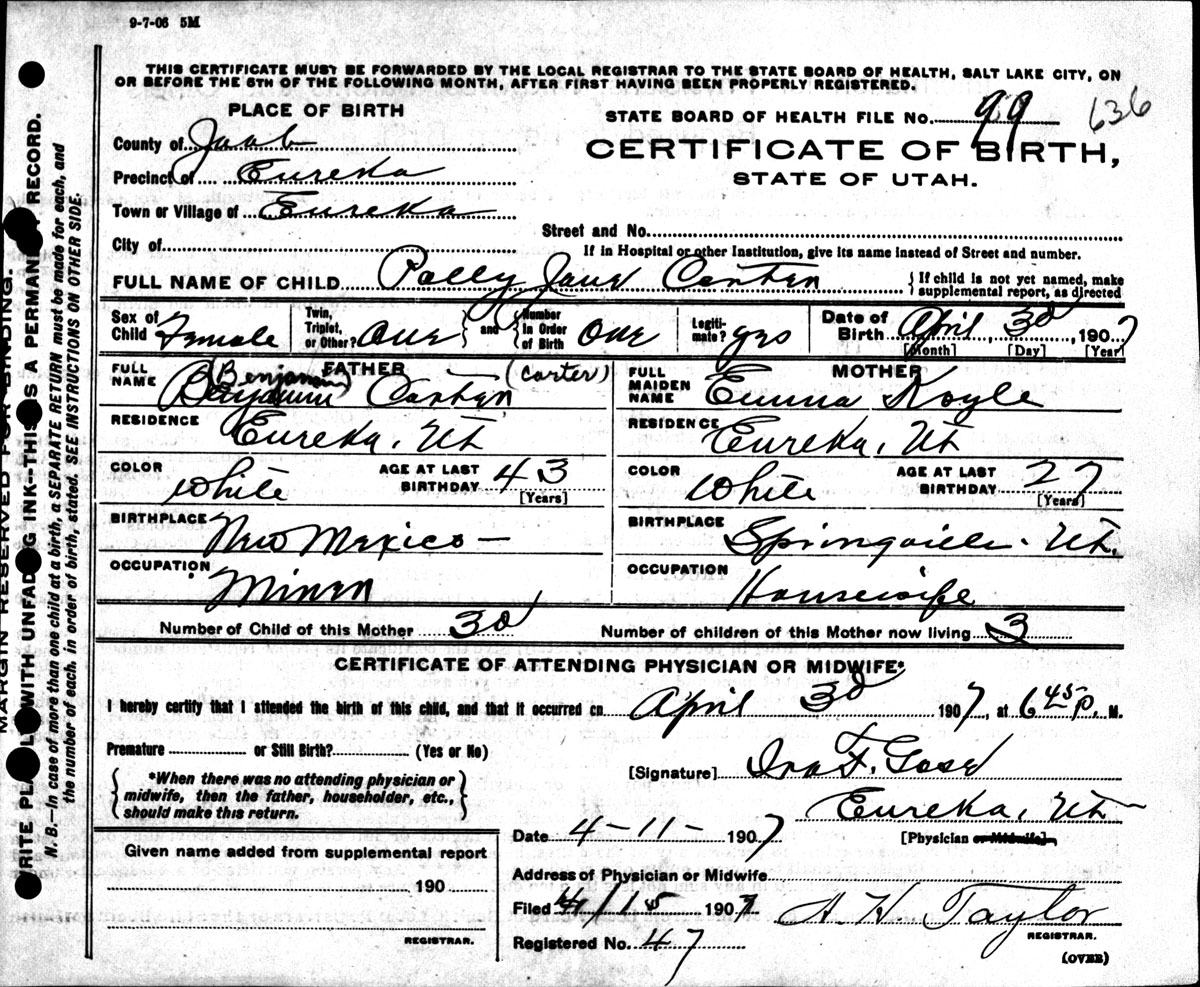 9-7-06 5M
THIS CERTIFICATE MUST BE FORWARDED BY THE LOCAL REGISTRAR TO THE STATE BOARD OF HEALTH, SALT LAKE CITY, ON
OR BEFORE THE 5TH OF THE FOLLOWING MONTH, AFTER FIRST HAVING BEEN PROPERLY REGISTERED.
PLACE OF BIRTH
STATE BOARD OF HEALTH FILE No. 99 636
County of Juab
CERTIFICATE OF BIRTH,
Precinct of Eureka
STATE OF UTAH.
Town or Village of Eureka
Street and No.
City of
If in Hospital or other Institution, give its name instead of Street and number.
FULL NAME OF CHILD Polly Jane Carter { If child is not yet named, make
supplemental report, as directed
Sex of Child Female Twin, Triplet, or Other? One { and } Number in Order of Birth One Legitimate? yes Date of Birth April 3d, 1907
[Month] [Day] [Year]
FATHER
MOTHER
FULL NAME Benjamin (Benjamin) Carter (Carter)
FULL MAIDEN NAME Emma Koyle
RESIDENCE Eureka, Ut
RESIDENCE Eureka, Ut
COLOR White AGE AT LAST BIRTHDAY 43 [Years]
COLOR White AGE AT LAST BIRTHDAY 27 [Years]
BIRTHPLACE New Mexico –
BIRTHPLACE Springville. Ut.
OCCUPATION Miner
OCCUPATION Housewife
Number of Child of this Mother 3d Number of children of this Mother now living 3
CERTIFICATE OF ATTENDING PHYSICIAN OR MIDWIFE*
I hereby certify that I attended the birth of this child, and that it occurred on April 3d 1907, at 6 45 P. M.
Premature or Still Birth? (Yes or No)
{ *When there was no attending physician or
midwife, then the father, householder, etc.,
should make this return. }
[Signature] Ira F.
Eureka, Ut
Date 4-11- 1907 [Physician or Midwife]
Given name added from supplemental report
190
REGISTRAR.
Address of Physician or Midwife
Filed 4/15 1907 A H Taylor
REGISTRAR.
Registered No. 47
(OVER)
MARGIN RESERVED FOR BINDING.
WRITE PLAINLY WITH UNFADING INK--THIS IS A PERMANENT RECORD.
N. B.—In case of more than one child at a birth, a SEPARATE RETURN must be made for each, and
the number of each, in order of birth, stated. SEE INSTRUCTIONS ON OTHER SIDE.